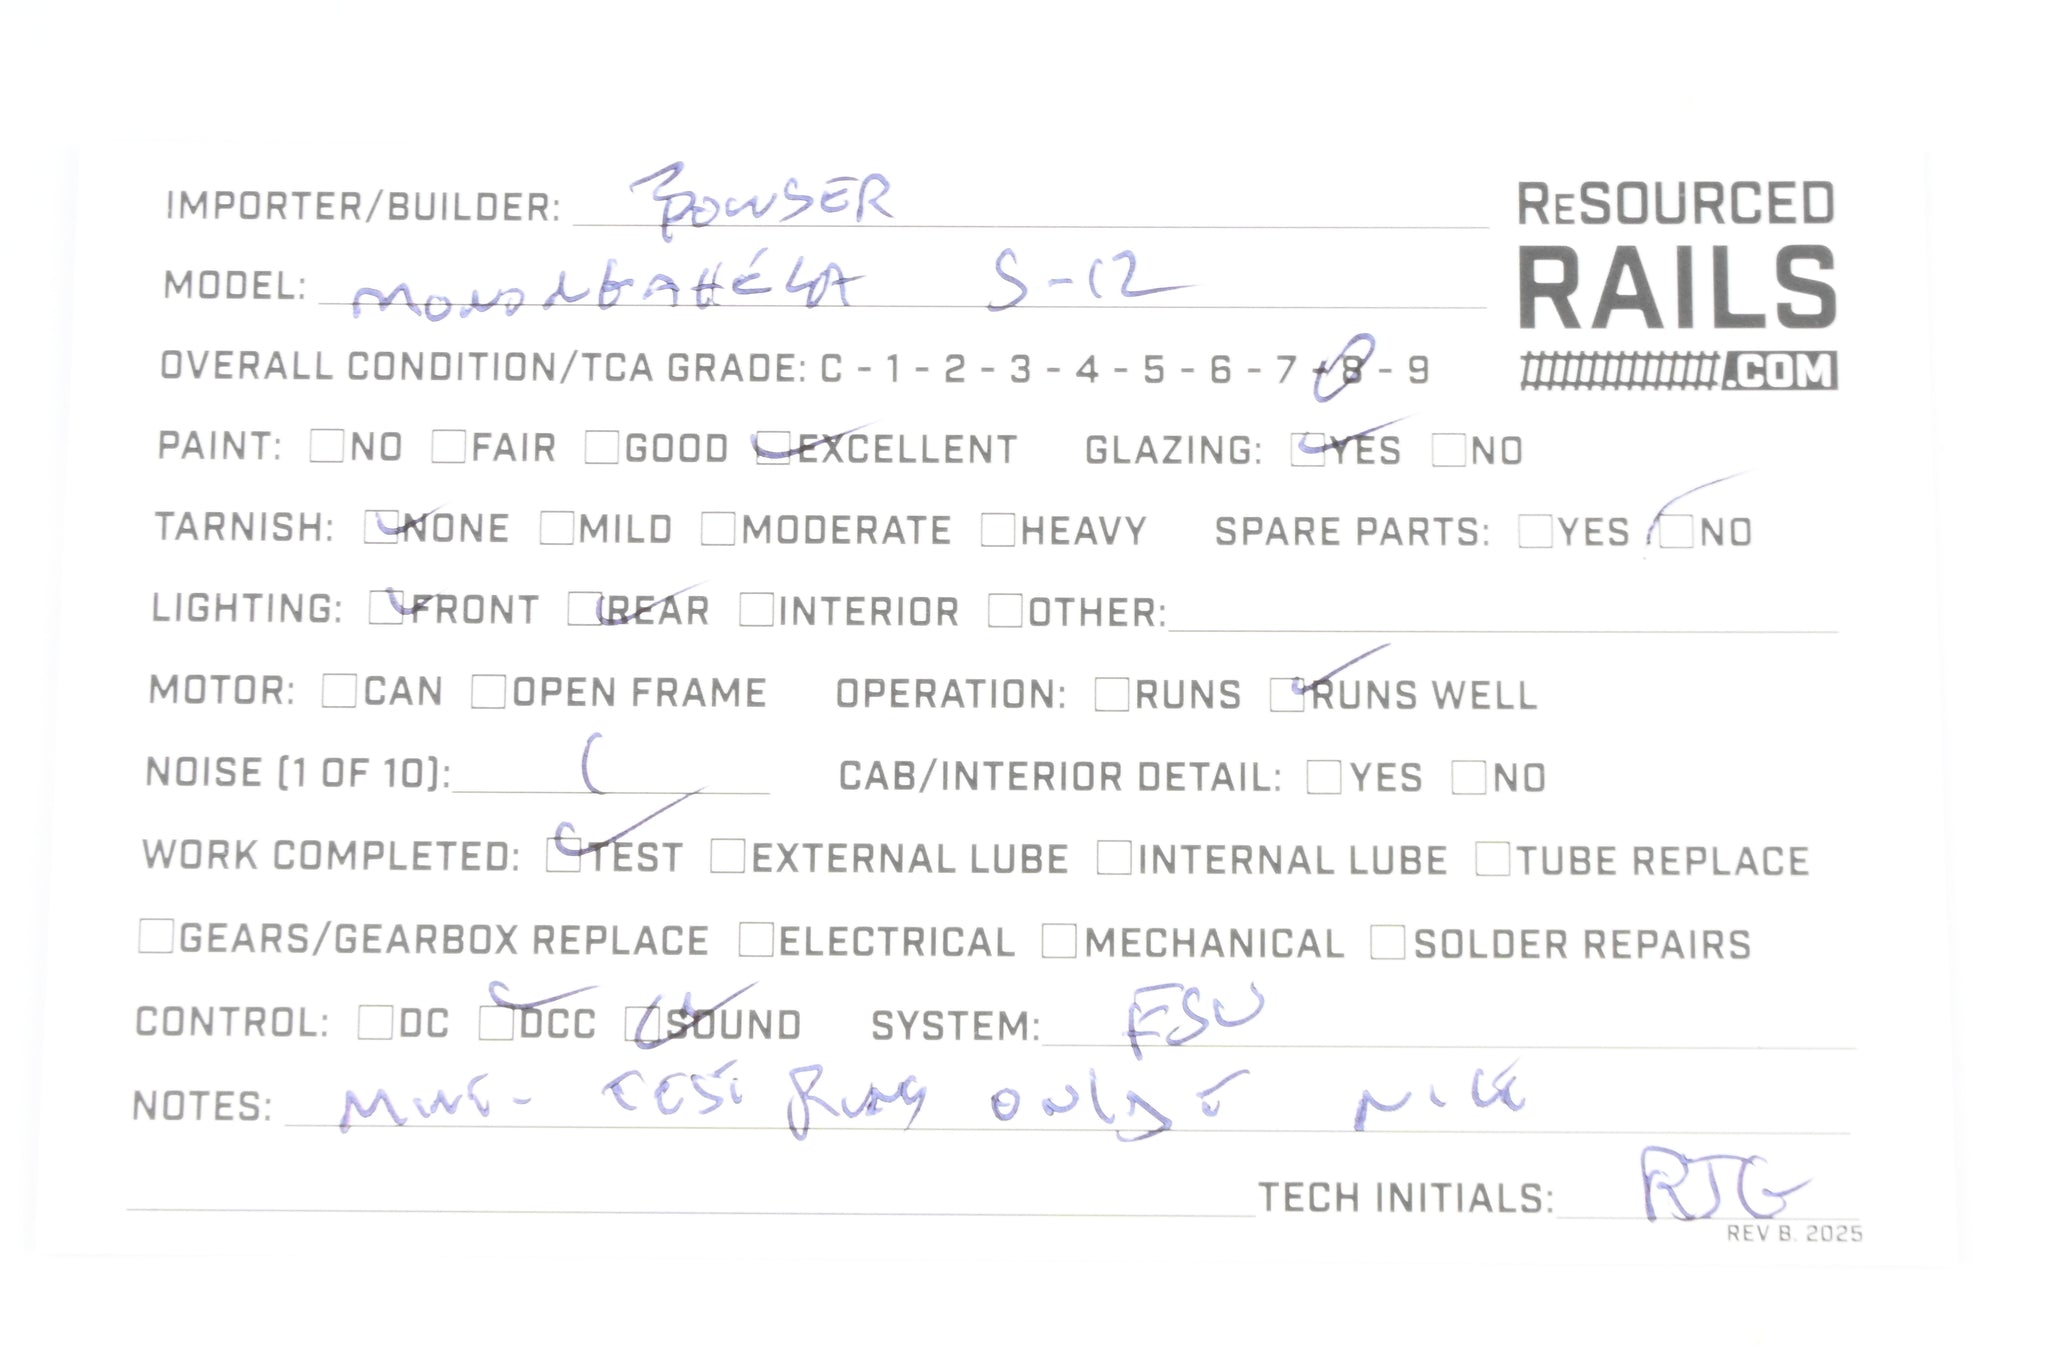 IMPORTER/BUILDER: BOWSER
ReSOURCED
RAILS
.COM
MODEL: MONONGAHELA S-12
OVERALL CONDITION/TCA GRADE: C - 1 - 2 - 3 - 4 - 5 - 6 - 7 - 8 - 9
PAINT: ☐NO ☐FAIR ☐GOOD ☑EXCELLENT GLAZING: ☑YES ☐NO
TARNISH: ☑NONE ☐MILD ☐MODERATE ☐HEAVY SPARE PARTS: ☐YES ☑NO
LIGHTING: ☑FRONT ☑REAR ☐INTERIOR ☐OTHER:
MOTOR: ☐CAN ☐OPEN FRAME OPERATION: ☐RUNS ☑RUNS WELL
NOISE (1 OF 10): 1 CAB/INTERIOR DETAIL: ☐YES ☐NO
WORK COMPLETED: ☑TEST ☐EXTERNAL LUBE ☐INTERNAL LUBE ☐TUBE REPLACE
☐GEARS/GEARBOX REPLACE ☐ELECTRICAL ☐MECHANICAL ☐SOLDER REPAIRS
CONTROL: ☐DC ☑DCC ☑SOUND SYSTEM: ESU
NOTES: TEST RUNS ONLY - NICE
TECH INITIALS: RJG
REV B. 2025